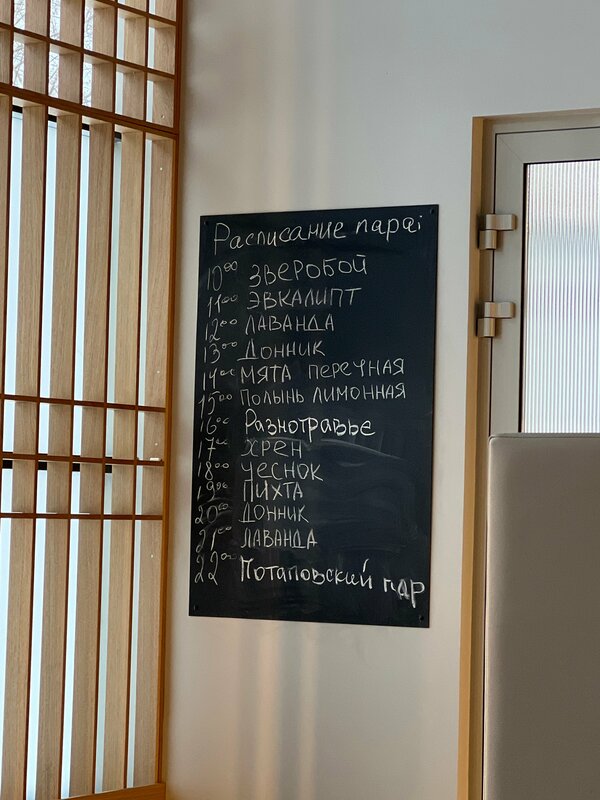 Расписание пара:
10⁰⁰ ЗВЕРОБОЙ
11⁰⁰ ЭВКАЛИПТ
12⁰⁰ ЛАВАНДА
13⁰⁰ ДОННИК
14⁰⁰ МЯТА ПЕРЕЧНАЯ
15⁰⁰ ПОЛЫНЬ ЛИМОННАЯ
16⁰⁰ Разнотравье
17⁰⁰ ХРЕН
18⁰⁰ ЧЕСНОК
19⁰⁰ ПИХТА
20⁰⁰ ДОННИК
21⁰⁰ ЛАВАНДА
22⁰⁰ Потаповский пар